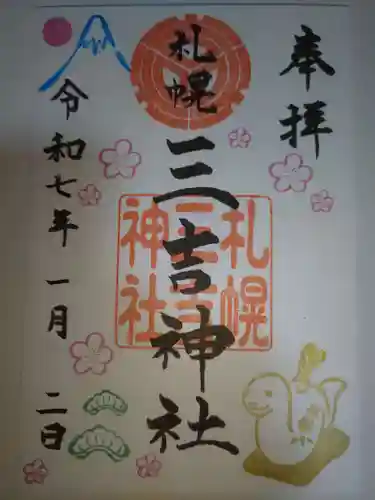 奉拝
札幌
三吉神社
札幌
三吉
神社
令和七年一月二日